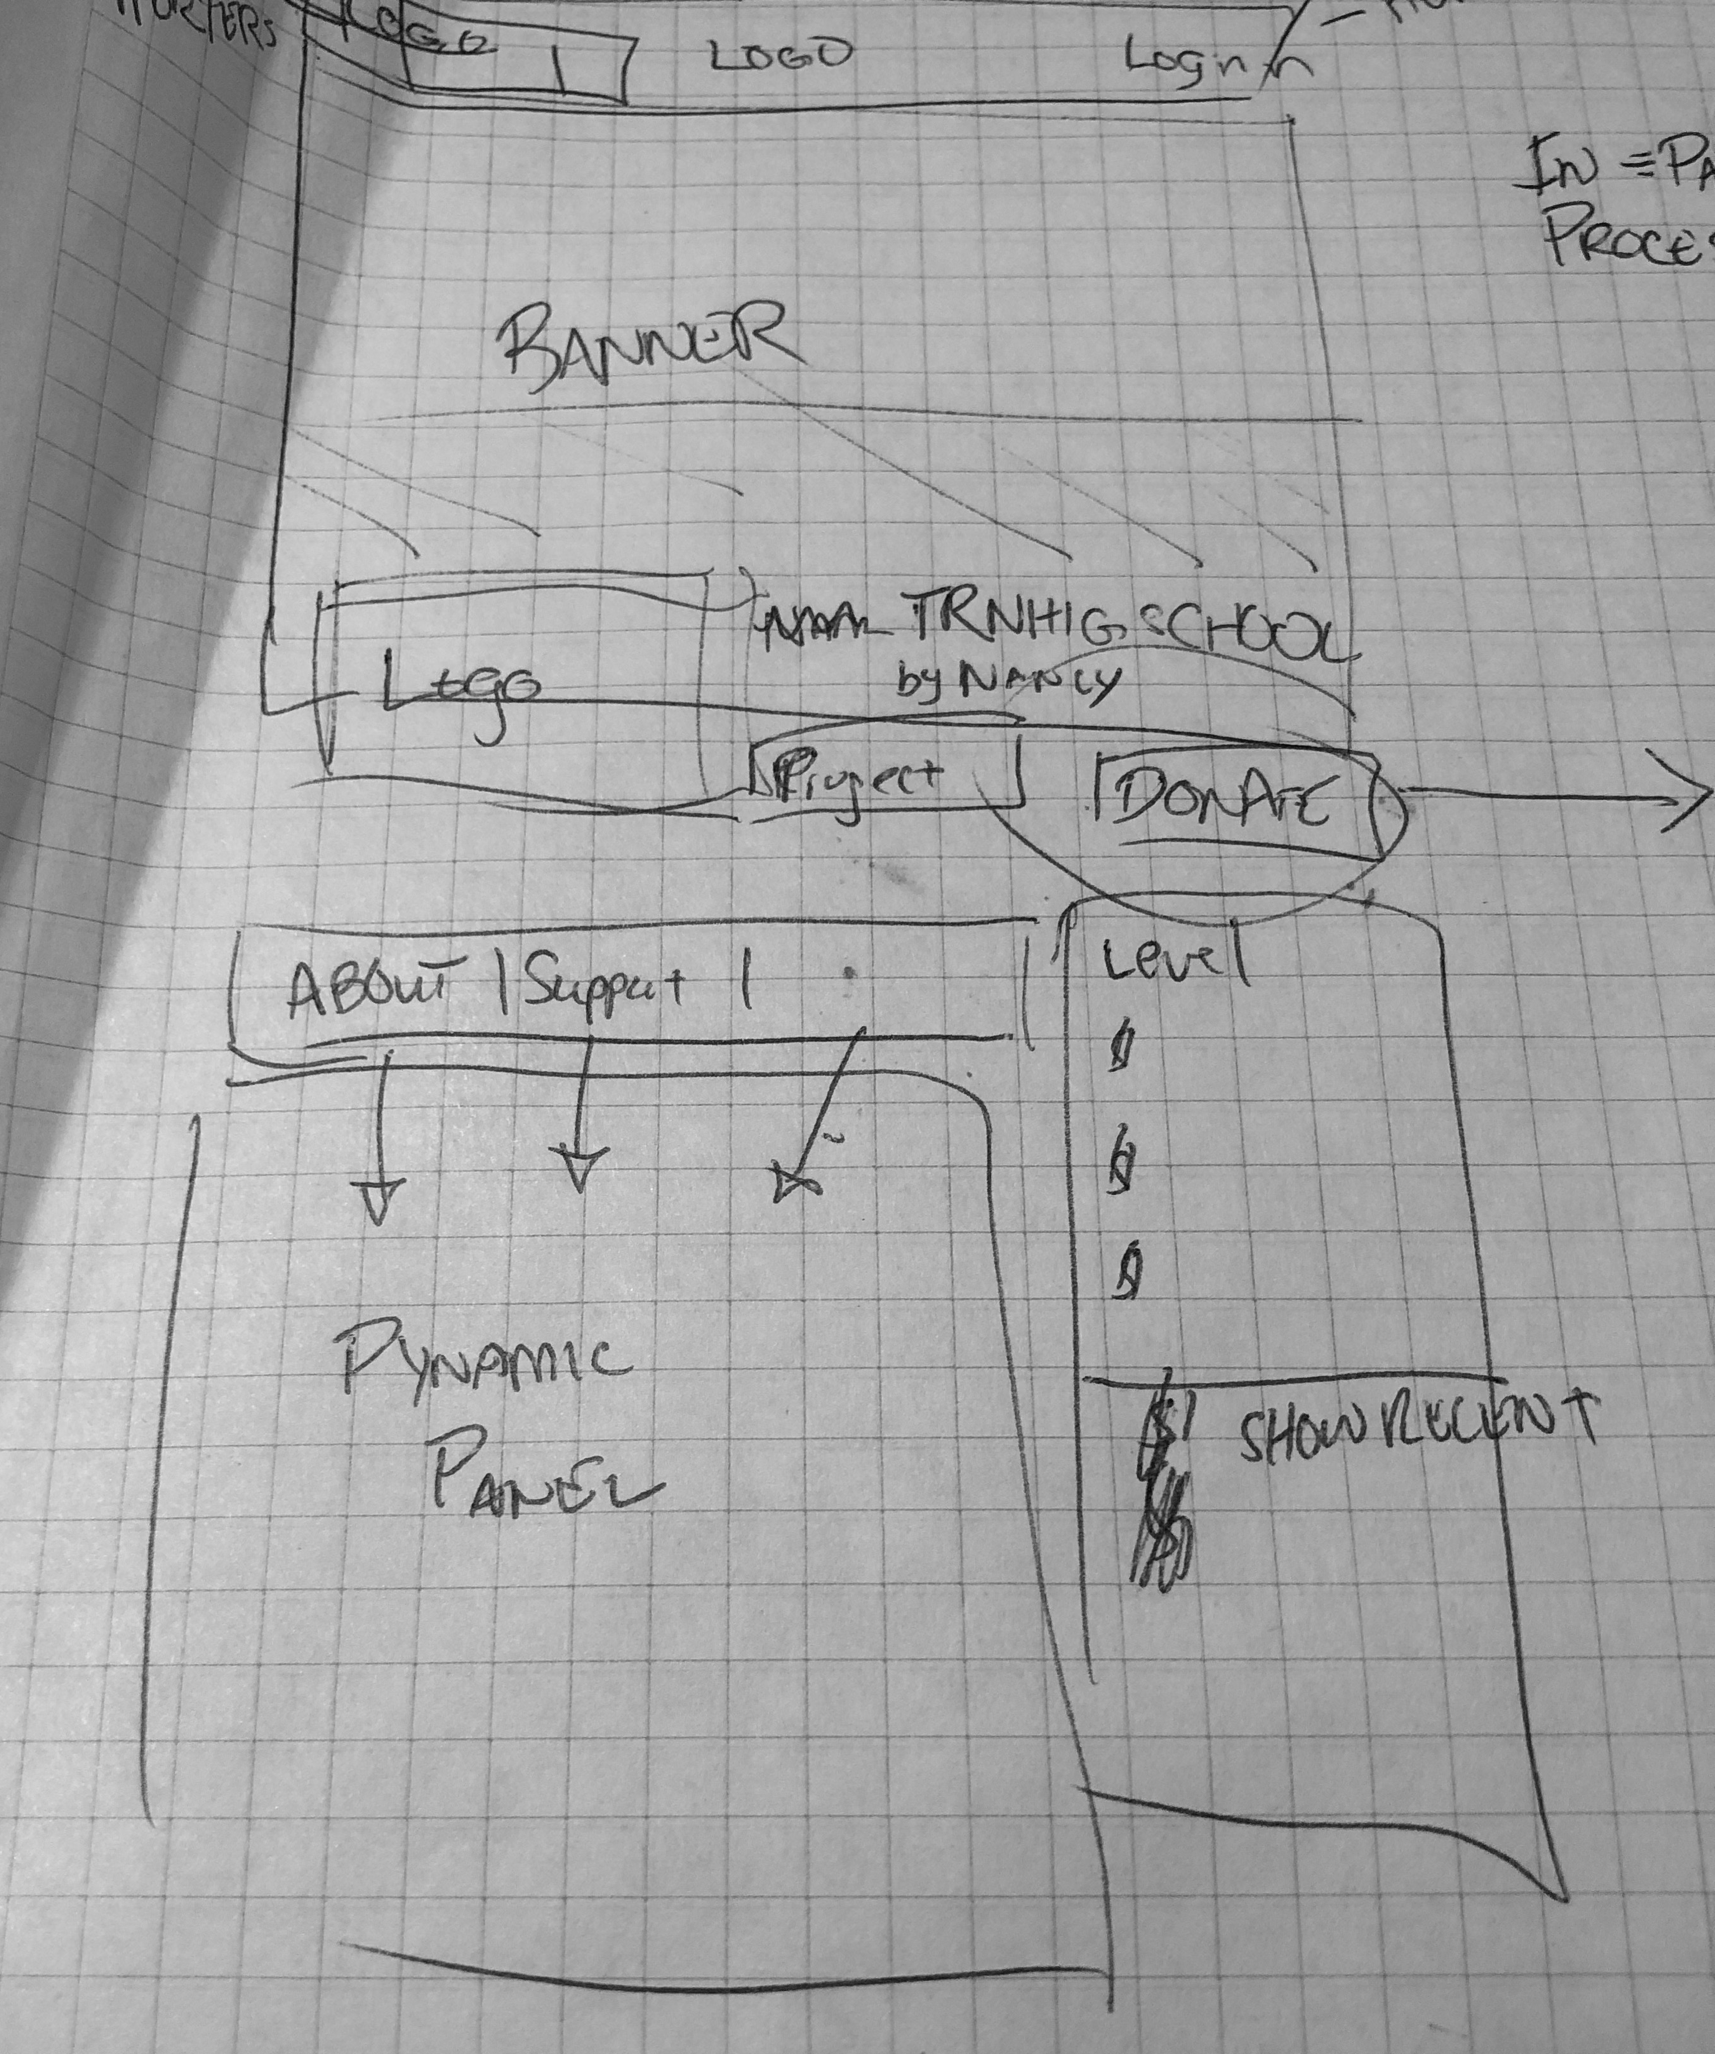 LOGO
LOGO
Login
IN = PA
PROCES
BANNER
SCHOOL
by NANCY
Logo
Project
DONATE
ABOUT | Support |
Level
$
$
$
$ SHOW RECENT
DYNAMIC
PANEL